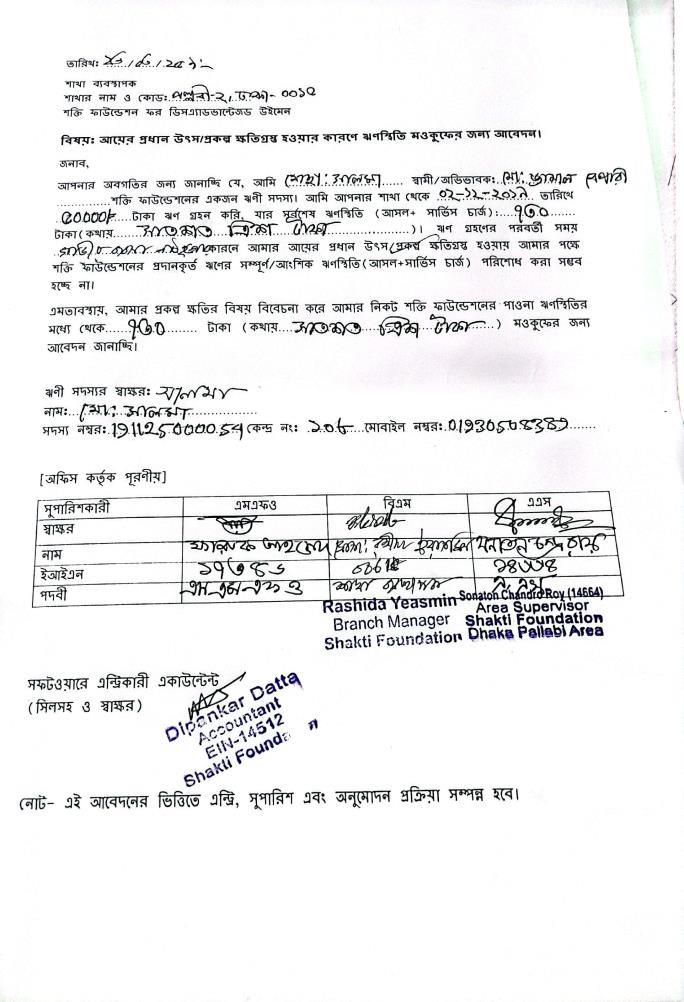 তারিখ:
শাখা ব্যবস্থাপক
শাখার নাম ও কোড: পল্লবী-২, ঢাকা- ০০১৫
শক্তি ফাউন্ডেশন ফর ডিসএ্যাডভান্টেজড উইমেন
বিষয়: আয়ের প্রধান উৎস/প্রকল্প ক্ষতিগ্রস্থ হওয়ার কারণে ঋণস্থিতি মওকুফের জন্য আবেদন।
জনাব,
আপনার অবগতির জন্য জানাচ্ছি যে, আমি মোসা: সালমা স্বামী/অভিভাবক: মো:
শক্তি ফাউন্ডেশনের একজন ঋণী সদস্য। আমি আপনার শাখা থেকে ০২-১২-২০১৯ তারিখে
৫০০০০/- টাকা ঋণ গ্রহন করি, যার সর্বশেষ ঋণস্থিতি (আসল+ সার্ভিস চার্জ): ৭৩০
টাকা (কথায় সাতশত ত্রিশ টাকা)। ঋণ গ্রহণের পরবর্তী সময়
কারনে আমার আয়ের প্রধান উৎস/প্রকল্প ক্ষতিগ্রস্থ হওয়ায় আমার পক্ষে
শক্তি ফাউন্ডেশনের প্রদানকৃত ঋণের সম্পূর্ণ/আংশিক ঋণস্থিতি (আসল+সার্ভিস চার্জ) পরিশোধ করা সম্ভব
হচ্ছে না।
এমতাবস্থায়, আমার প্রকল্প ক্ষতির বিষয় বিবেচনা করে আমার নিকট শক্তি ফাউন্ডেশনের পাওনা ঋণস্থিতির
মধ্যে থেকে ৭৩০ টাকা (কথায় সাতশত ত্রিশ টাকা) মওকুফের জন্য
আবেদন জানাচ্ছি।
ঋণী সদস্যের স্বাক্ষর: সালমা
নাম: মোসা: সালমা
সদস্য নম্বর: কেন্দ্র নং: ২০৮ মোবাইল নম্বর: 01930508389
[অফিস কর্তৃক পূরণীয়]
সুপারিশকারী এমএফও বিএম এএস
স্বাক্ষর
নাম সনাতন চন্দ্র রায়
ইআইএন ১৭৩৪৬ ১৪৬৬৪
পদবী এম এফ ও শাখা ব্যবস্থাপক
Rashida Yeasmin
Branch Manager
Shakti Foundation
Sonaton Chandra Roy (14664)
Area Supervisor
Shakti Foundation
Dhaka Pallabi Area
সফটওয়ারে এন্ট্রিকারী একাউন্টেন্ট
(সিলসহ ও স্বাক্ষর)
Dipankar Datta
Accountant
EIN-14512
Shakti Founda n
নোট- এই আবেদনের ভিত্তিতে এন্ট্রি, সুপারিশ এবং অনুমোদন প্রক্রিয়া সম্পন্ন হবে।